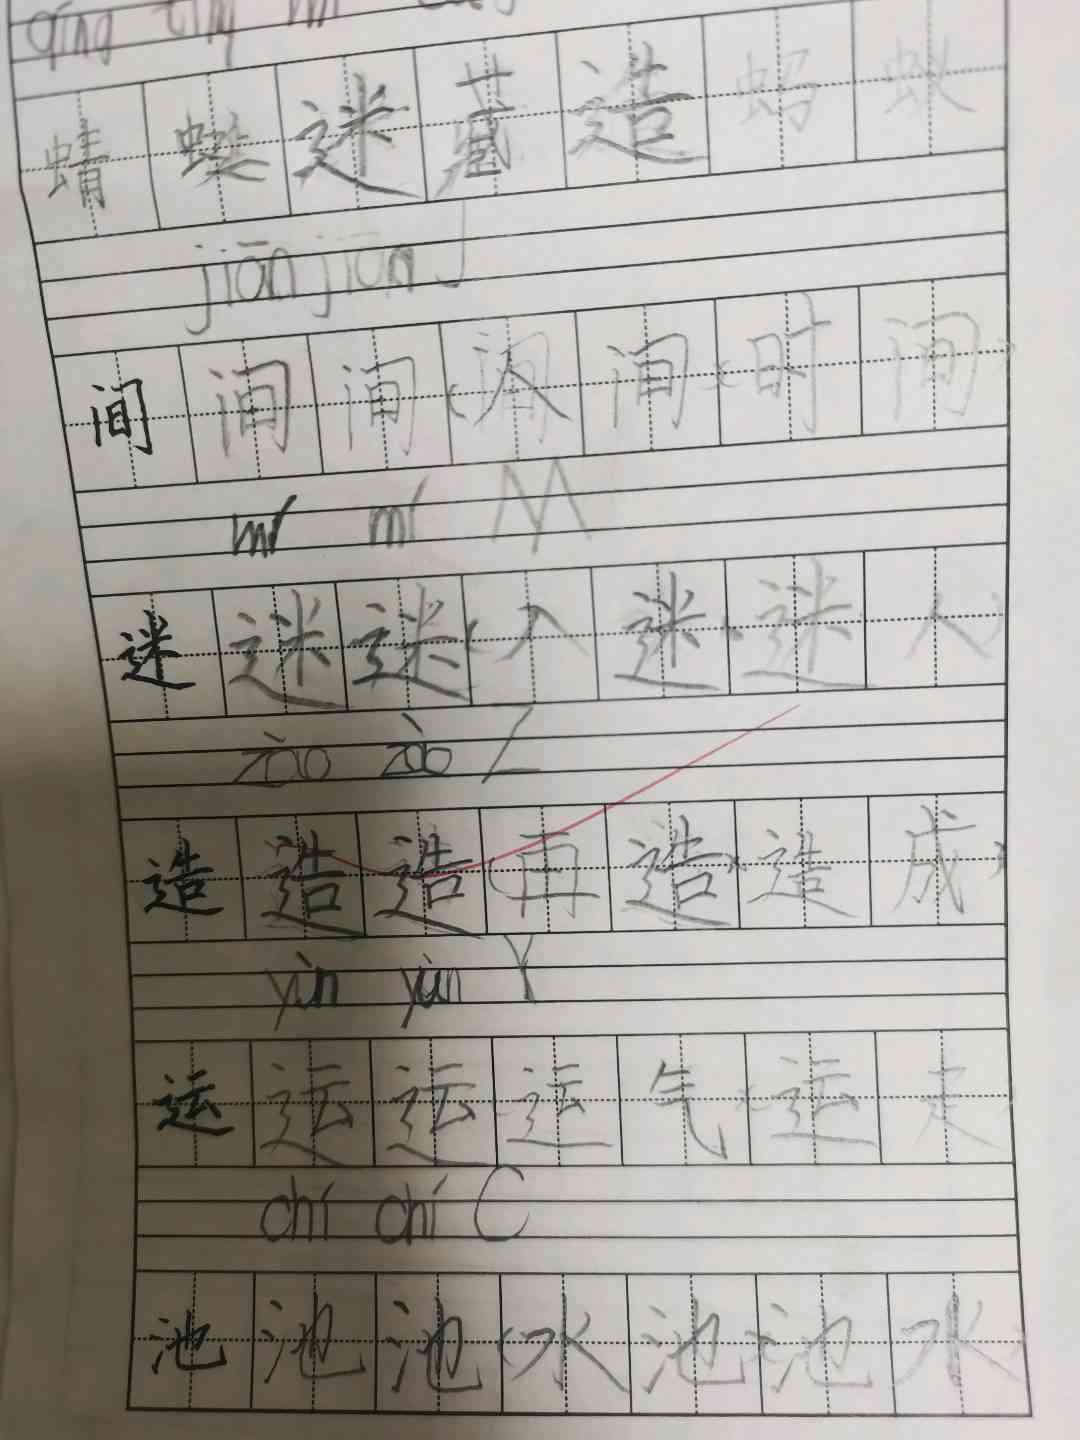 qíng tíng mí
蜻蜓迷藏造蚂蚁
jiān jiān J
间间间(人间)(时间)
mí mí M
迷迷迷(入迷)(迷人)
zào zào Z
造造造(再造)(造成)
yùn yùn Y
运运运(运气)(运走)
chí chí C
池池池(水池)(池水)